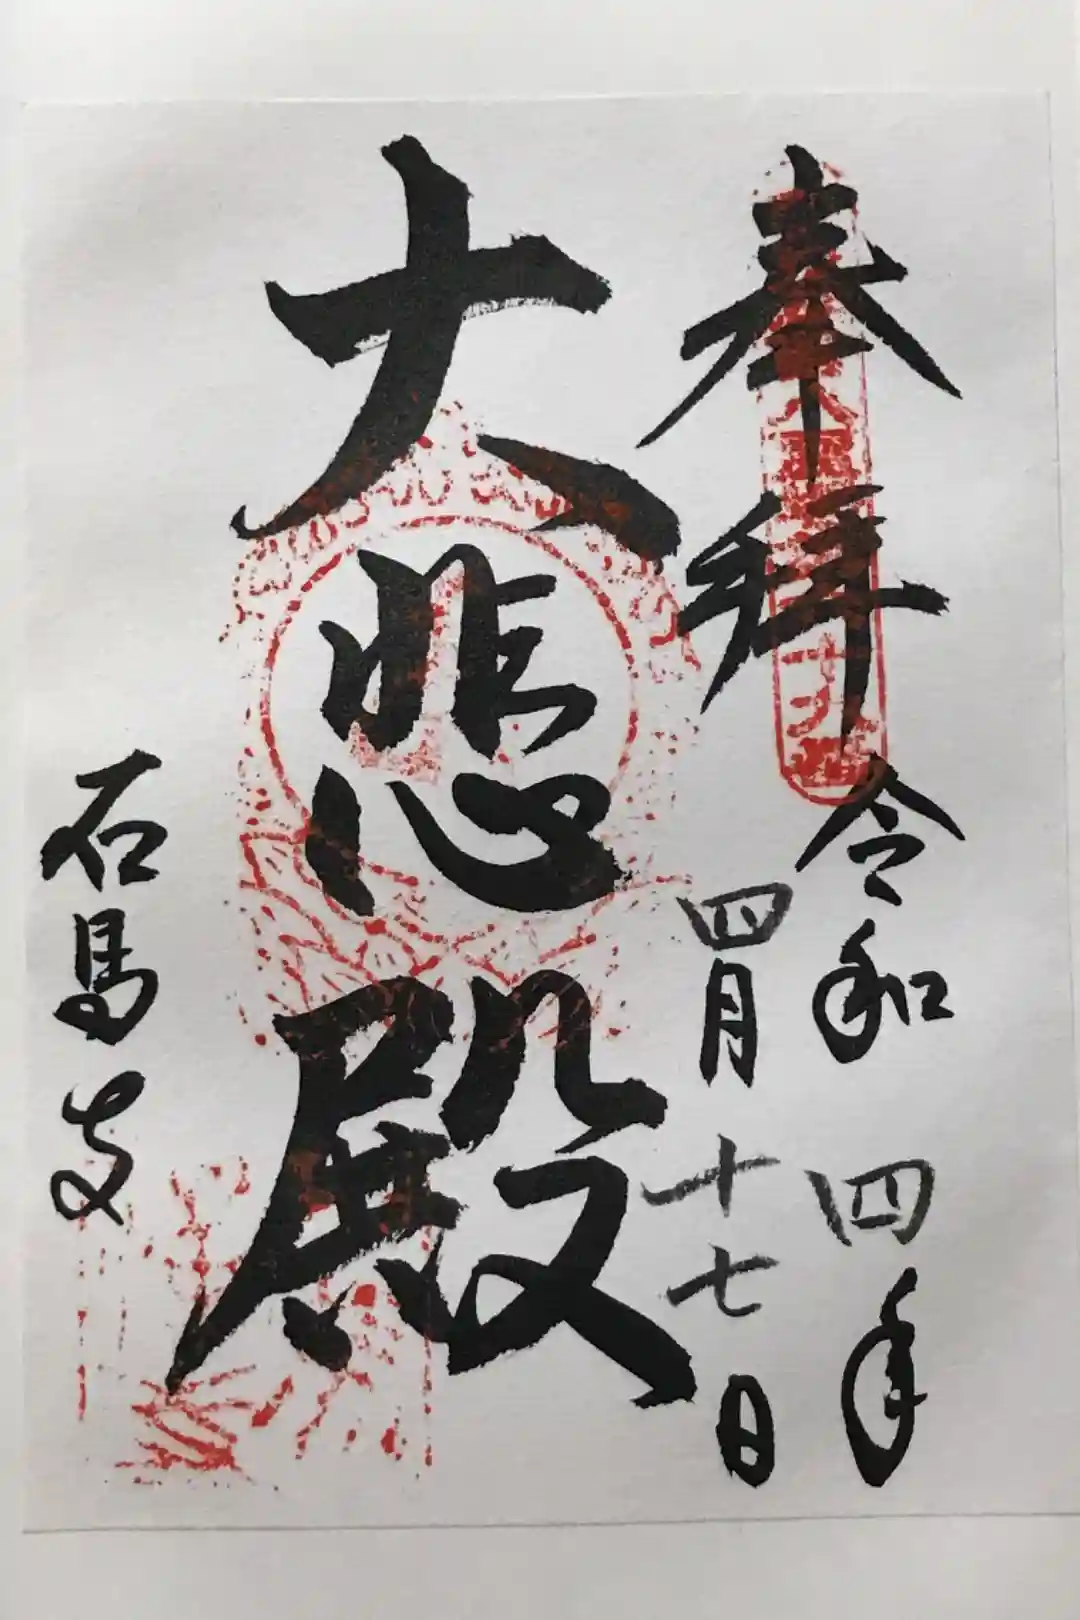 奉拝
令和四年
四月十七日
大悲殿
石馬寺